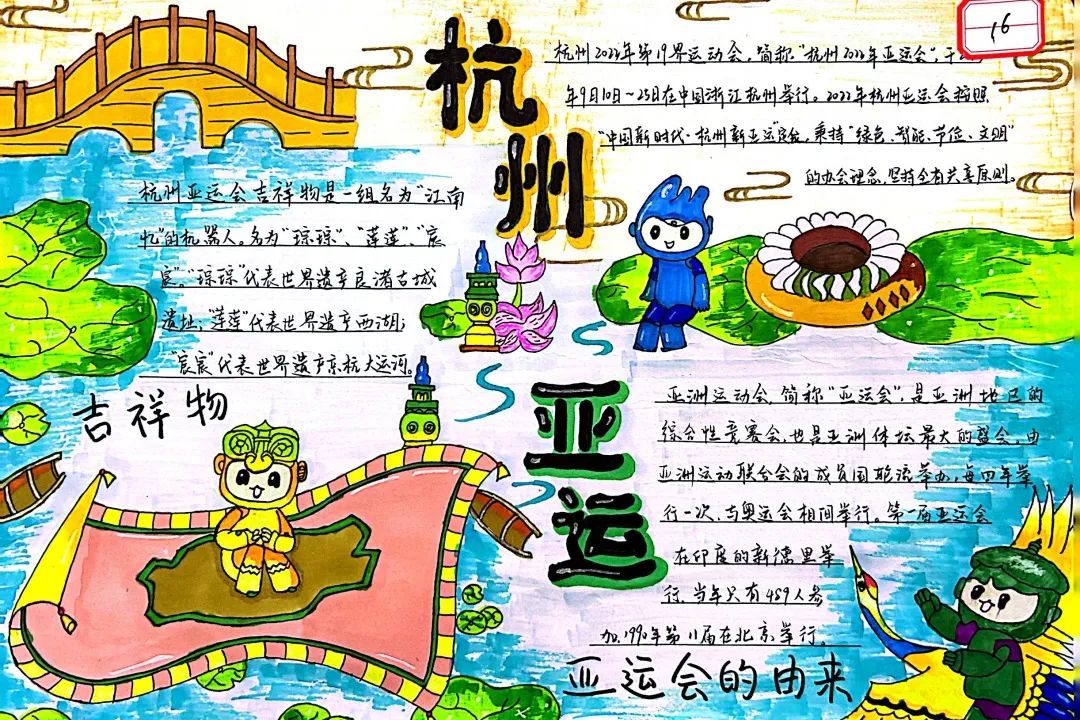 杭州
16
杭州2022年第19界运动会,简称"杭州2022年亚运会",于
年9月10日~25日在中国浙江杭州举行。2022年杭州亚运会按照
"中国新时代·杭州新亚运"定位,秉持"绿色、智能、节俭、文明"
的办会理念,坚持全有共享原则。
杭州亚运会吉祥物是一组名为"江南
忆"的机器人。名为"琮琮"、"莲莲"、"宸
宸"。"琮琮"代表世界遗产良渚古城
遗址;"莲莲"代表世界遗产西湖;
"宸宸"代表世界遗产京杭大运河。
吉祥物
亚运
亚洲运动会,简称"亚运会",是亚洲地区的
综合性竞赛会,也是亚洲体坛最大的盛会,由
亚洲运动联合会的成员国轮流举办,每四年举
行一次,与奥运会相间举行。第一届亚运会
在印度的新德里举
行,当年只有489人参
加,1990年第11届在北京举行。
亚运会的由来